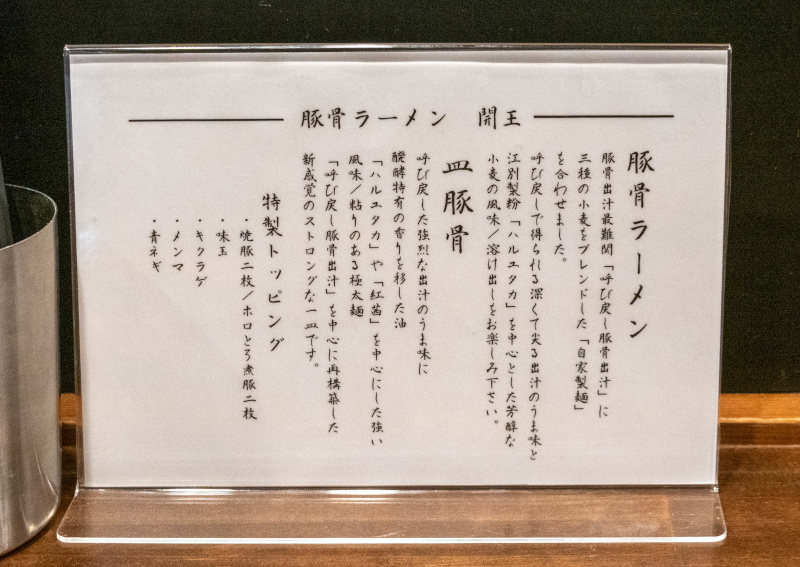 豚骨ラーメン 開王
豚骨ラーメン
豚骨出汁最難関「呼び戻し豚骨出汁」に
三種の小麦をブレンドした「自家製麺」
を合わせました。
呼び戻しで得られる深くて尖る出汁のうま味と
江別製粉「ハルユタカ」を中心とした芳醇な
小麦の風味/溶け出しをお楽しみ下さい。
皿豚骨
呼び戻した強烈な出汁のうま味に
醗酵特有の香りを移した油
「ハルユタカ」や「紅茜」を中心にした強い
風味/粘りのある極太麺
「呼び戻し豚骨出汁」を中心に再構築した
新感覚のストロングな一皿です。
特製トッピング
・焼豚二枚/ホロとろ煮豚二枚
・味玉
・キクラゲ
・メンマ
・青ネギ